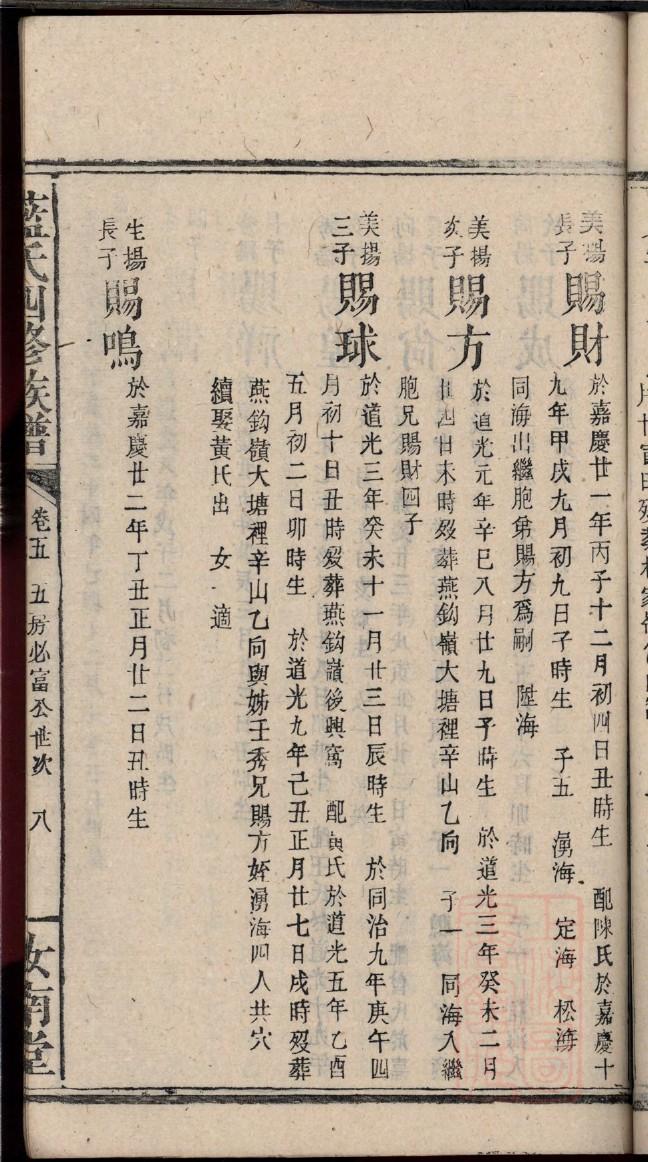 美揚
長子
賜財
於嘉慶廿一年丙子十二月初四日丑時生 配陳氏於嘉慶十
九年甲戌九月初九日子時生 子五 湧海 定海 松海
同海出繼胞弟賜方爲嗣 陞海
美揚
次子
賜方
於道光元年辛巳八月廿九日子時生 於道光三年癸未二月
廿四廿未時歿葬燕鈎嶺大塘裡辛山乙向 子一 同海入繼
胞兄賜財四子
美揚
三子
賜球
於道光三年癸未十一月廿三日辰時生 於同治九年庚午四
月初十日丑時歿葬燕鈎嶺後興窩 配 氏於道光五年乙酉
五月初二日卯時生 於道光九年己丑正月廿七日戌時歿葬
燕鈎嶺大塘裡辛山乙向與姊壬秀兄賜方姪湧海四人共穴
續娶黃氏出 女 適
生揚
長子
賜鳴
於嘉慶廿二年丁丑正月廿二日丑時生
藍氏四修族譜
卷五 五房必富公世次 八
汝南堂